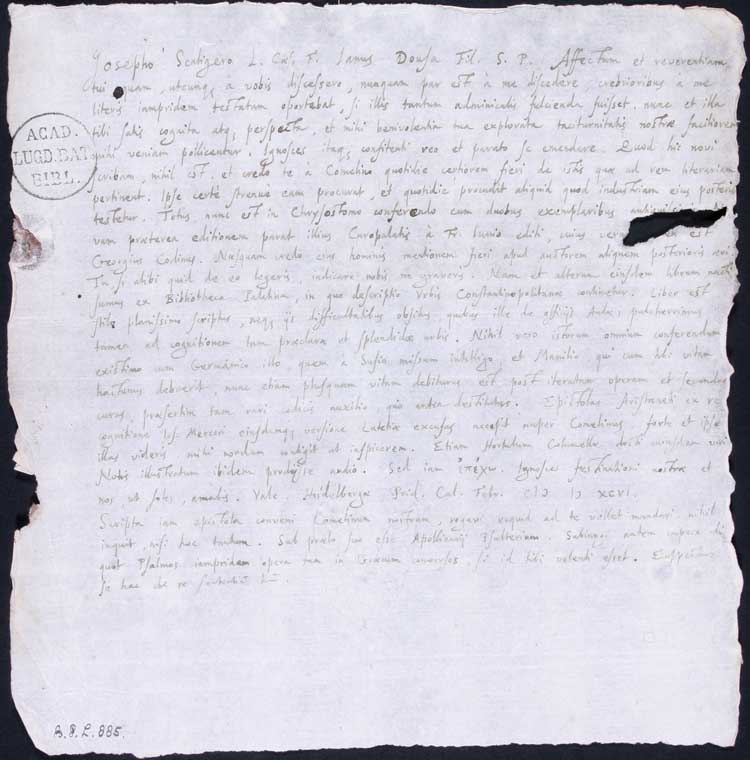 Josepho Scaligero I. Cæs. F. Janus Dousa Fil. S. P. Affectum et reverentiam
tui quam, utcunq, a vobis discessero, nunquam par est à me discedere, crebrioribus à me
literis iampridem testatam oportebat, si illis tantum adminiculis fulcienda fuisset. nunc et illa
tibi satis cognita atq, perspecta, et mihi benivolentia tua explorata taciturnitatis nostræ faciliorem
mihi veniam pollicentur. Ignosces itaq, confitenti reo et parato se emendare. Quod hic novi
scribam, nihil est, et credo te à Comelino quotidie certiorem fieri de istis quæ ad rem literariam
pertinent. Ipse certè strenuè eam procurat, et quotidie procudit aliquid quod industriam eius posteris
testetur. Totus nunc est in Chrysostomo conferendo cum duobus exemplaribus
vam præterea editionem parat illius Curopalatis à Fr. Iunio editi, cuius est
Georgius Codinus. Nusquam credo eius hominis mentionem fieri apud auctorem aliquem posterioris ævi.
Tu, si alibi quid de eo legeris, indicare nobis ne graveris. Nam et alterum eiusdem librum nacti
sumus ex Bibliotheca Palatina, in quo descriptio Urbis Constantinopolitanæ continetur. Liber est
stilo planissimo scriptus, neq, iis difficultatibus obsitus, quibus ille de officijs Aulæ, pulcherrimus
tamen ad cognitionem tam præclaræ et splendidæ urbis. Nihil vero istorum omnium conferendum
existimo cum Germanico illo, quem à Susio missum intelligo, et Manilio, qui cum tibi vitam
hactenus debuerit, nunc etiam plusquam vitam debiturus est post iteratam operam et secundas
curas, præsertim tam rari codicis auxilio, quo antea destitutus. Epistolas Aristæneti ex re
cognitione Ios. Merceri eiusdemq, versione Lutetiæ excusas accepit nuper Comelinus, forte et ipse
illas videris mihi nondum contigit ut inspicerem. Etiam Hortulum Columellæ docti cuiusdam viri
Notis illustratum ibidem prodijsse audio. Sed iam ἐπέχω. Ignosces festinationi nostræ et
nos, ut soles, amabis. Vale. Heidelbergæ Prid. Cal. Febr. CIↃ IↃ XCVI.
Scripta iam epistola conveni Comelinum nostrum, rogavi ecquid ad te vellet mandari, nihil
inquit, nisi hoc tantum. Sub prælo suo esse Apollinarij Psalterium. Subiungi autem
quot Psalmos iampridem opera tua in Græcum conversos, si id tibi volenti esset.
se hac de re
ACAD.
LUGD.BAT.
BIBL.
B.P.L. 885.